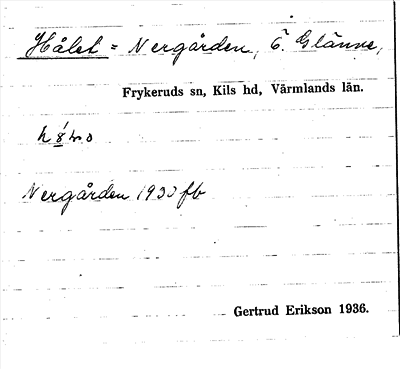 Hålet = Nergården, Ö. Glänne,
Frykeruds sn, Kils hd, Värmlands län.
Nergården 1933 fb
Gertrud Erikson 1936.